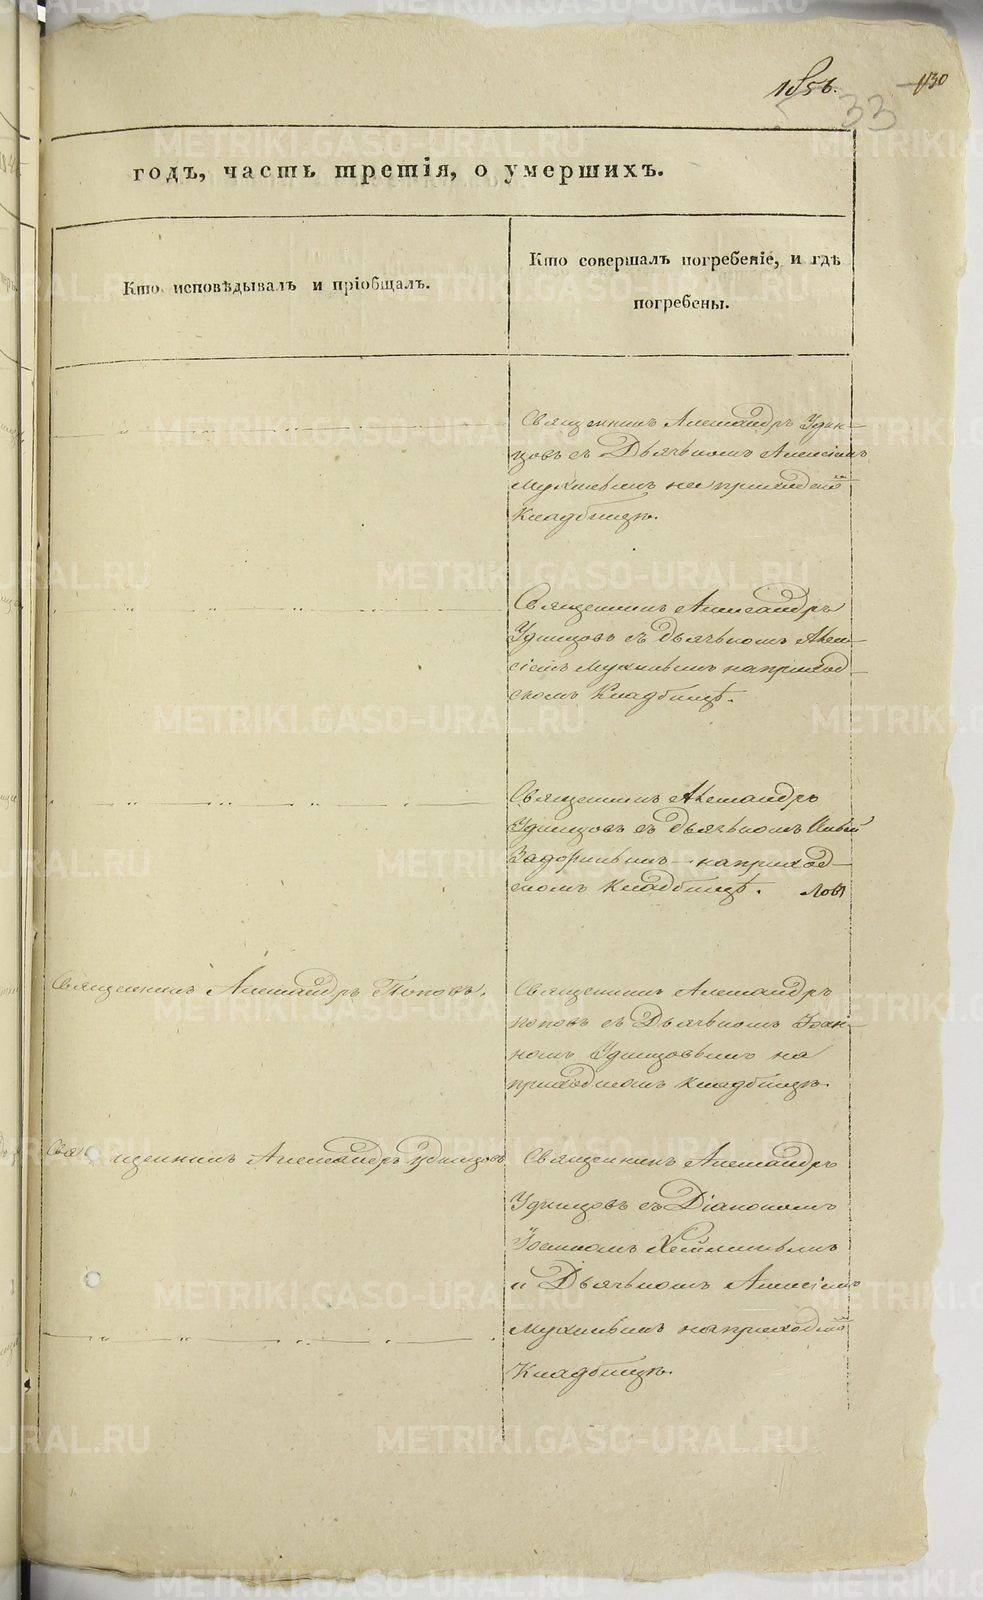 1856.
33
130
годъ, часть третія, о умершихъ.
Кто исповѣдывалъ и пріобщалъ.
Кто совершалъ погребеніе, и гдѣ
погребены.
Священникъ Александръ Удин-
цовъ съ Дьячкомъ Алексіемъ
на приходско
Кладбищѣ.
Священникъ Александръ
Удинцовъ съ дьячкомъ Алек-
сіемъ на приход-
скомъ Кладбищѣ.
Священникъ Александръ
Удинцовъ съ дьячкомъ
на приход-
скомъ Кладбищѣ.
Священникъ Александръ Поповъ.
Священникъ Александръ
поповъ съ Дьячкомъ Іоан-
номъ Удинцовымъ на
приходскомъ кладбищѣ.
Священникъ Александръ Удинцовъ
Священникъ Александръ
Удинцовъ съ Діакономъ
Іоанномъ
и Дьячкомъ Алексіемъ
на приходско
Кладбищѣ.
METRIKI.GASO-URAL.RU